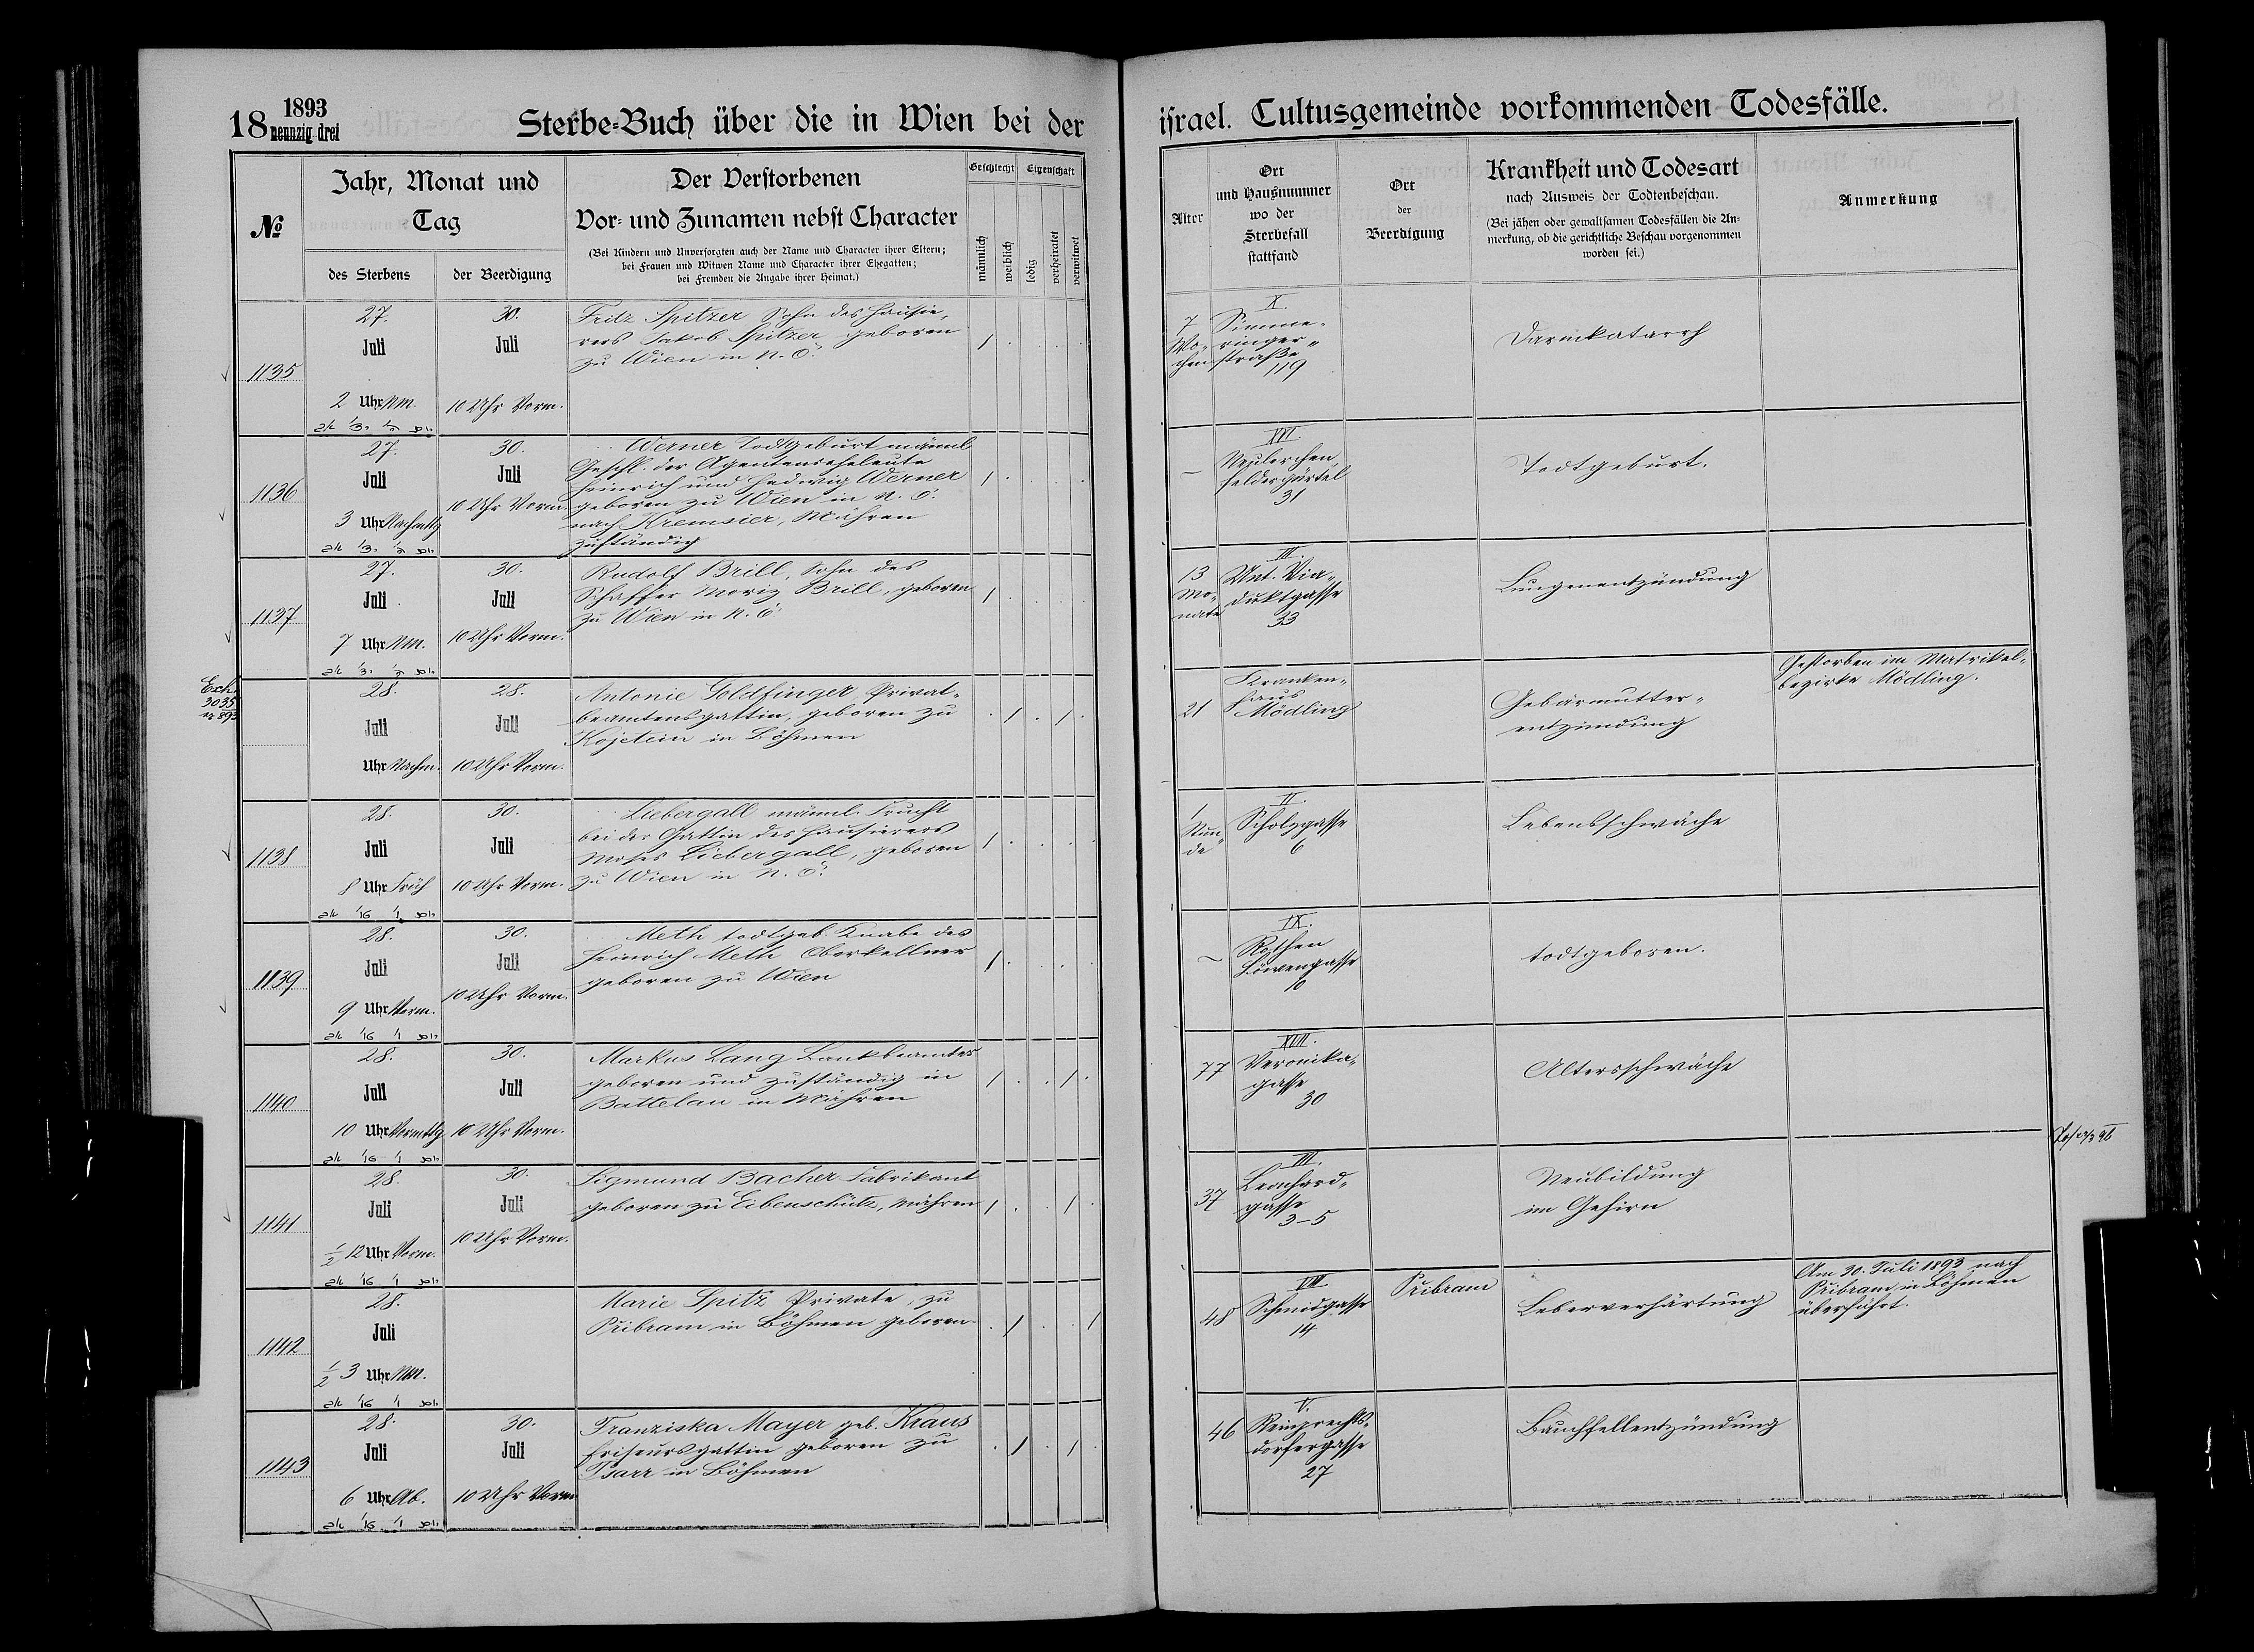 1893
18 neunzig drei
Sterbe-Buch über die in Wien bei der
israel. Cultusgemeinde vorkommenden Todesfälle.
№
Jahr, Monat und
Tag
des Sterbens
der Beerdigung
Der Verstorbenen
Vor- und Zunamen nebst Character
(Bei Kindern und Unversorgten auch der Name und Character ihrer Eltern;
bei Frauen und Witwen Name und Character ihrer Ehegatten;
bei Fremden die Angabe ihrer Heimat.)
Geschlecht
männlich
weiblich
Eigenschaft
ledig
verheiratet
verwitwet
Alter
Ort
und Hausnummer
wo der
Sterbefall
stattfand
Ort
der
Beerdigung
Krankheit und Todesart
nach Ausweis der Todtenbeschau.
(Bei jähen oder gewaltsamen Todesfällen die An-
merkung, ob die gerichtliche Beschau vorgenommen
worden sei.)
Anmerkung
1135
27.
Juli
2 Uhr Nm.
30.
Juli
10 Uhr Vorm.
Fritz Spitzer Sohn des Hausie-
rers Jakob Spitzer geboren
zu Wien in N. Ö.
7
Wo-
chen
X.
Simme-
ringer-
straße
119
Darmkatarrh
1136
27.
Juli
3 Uhr Nachmttg
30.
Juli
10 Uhr Vorm.
Werner Todtgeburt männl
Geschl. der Agentenseheleute
Heinrich und Hedwig Werner
geboren zu Wien in N. Ö.
nach Kremsier, Mähren
zuständig
–
XVI.
Neulerchen
felder gürtel
31
Todtgeburt.
1137
27.
Juli
7 Uhr Nm.
30.
Juli
10 Uhr Vorm.
Rudolf Brill, Sohn des
Schaffer Moriz Brill, geboren
zu Wien in N. Ö.
13
Mo-
nate
III.
Unt. Via-
duktgasse
33
Lungenentzündung
Exh.
3035
28.
Juli
Uhr Nachm.
28.
Juli
10 Uhr Vorm.
Antonie Goldfinger, Privat-
beamtensgattin, geboren zu
Kojetein in Böhmen
21
Kranken-
haus
Mödling
Gebärmutter-
entzündung
Gestorben im Matrikel-
bezirke Mödling.
1138
28.
Juli
8 Uhr Früh
30.
Juli
10 Uhr Vorm.
Liebergall männl. Frucht
bei der Gattin des Hausierers
Moses Liebergall, geboren
zu Wien in N. Ö.
1
Stun-
de
II.
Scholzgasse
6
Lebensschwäche
1139
28.
Juli
9 Uhr Vorm.
30.
Juli
10 Uhr Vorm.
Meth todtgeb. Knabe des
Heinrich Meth Oberkellner
geboren zu Wien
–
IX.
Rothen
Löwengasse
10
todtgeboren.
1140
28.
Juli
10 Uhr Vormttg
30.
Juli
10 Uhr Vorm.
Markus Lang Bankbeamter
geboren und zuständig in
Battelau in Mähren
77
XVII.
Veronika-
gasse
30
Altersschwäche
1141
28.
Juli
1/2 12 Uhr Vorm.
30.
Juli
10 Uhr Vorm.
Sigmund Bacher Fabrikant
geboren zu Eibenschütz, Mähren
37
III.
Leonhard-
gasse
3-5
Neubildung
im Gehirn
1142
28.
Juli
1/2 3 Uhr Nm.
Marie Spitz Private, zu
Pribram in Böhmen geboren
48
VIII.
Schmidgasse
14
Pribram
Leberverhärtung
Am 30. Juli 1893 nach
Pribram in Böhmen
überführt.
1143
28.
Juli
6 Uhr Ab.
30.
Juli
10 Uhr Vorm
Franziska Mayer geb. Kraus
Friseursgattin geboren zu
in Böhmen
46
V.
Reinprechts-
dorfergasse
27
Bauchfellentzündung